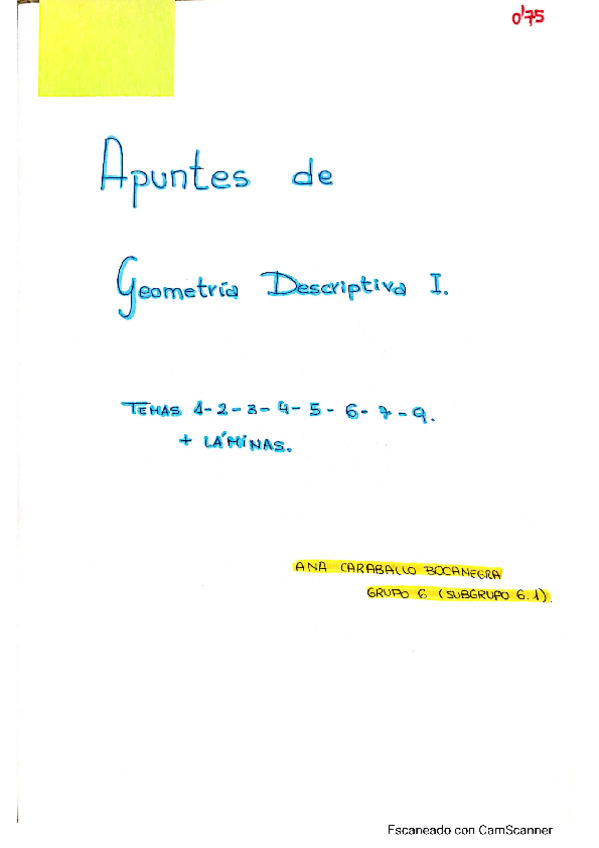 0'75
Apuntes de
Geometría Descriptiva I.
TEMAS 1-2-3-4-5-6-7-9.
+ LÁMINAS.
ANA CARABALLO BOCANEGRA
GRUPO 6 (SUBGRUPO 6.1).
Escaneado con CamScanner